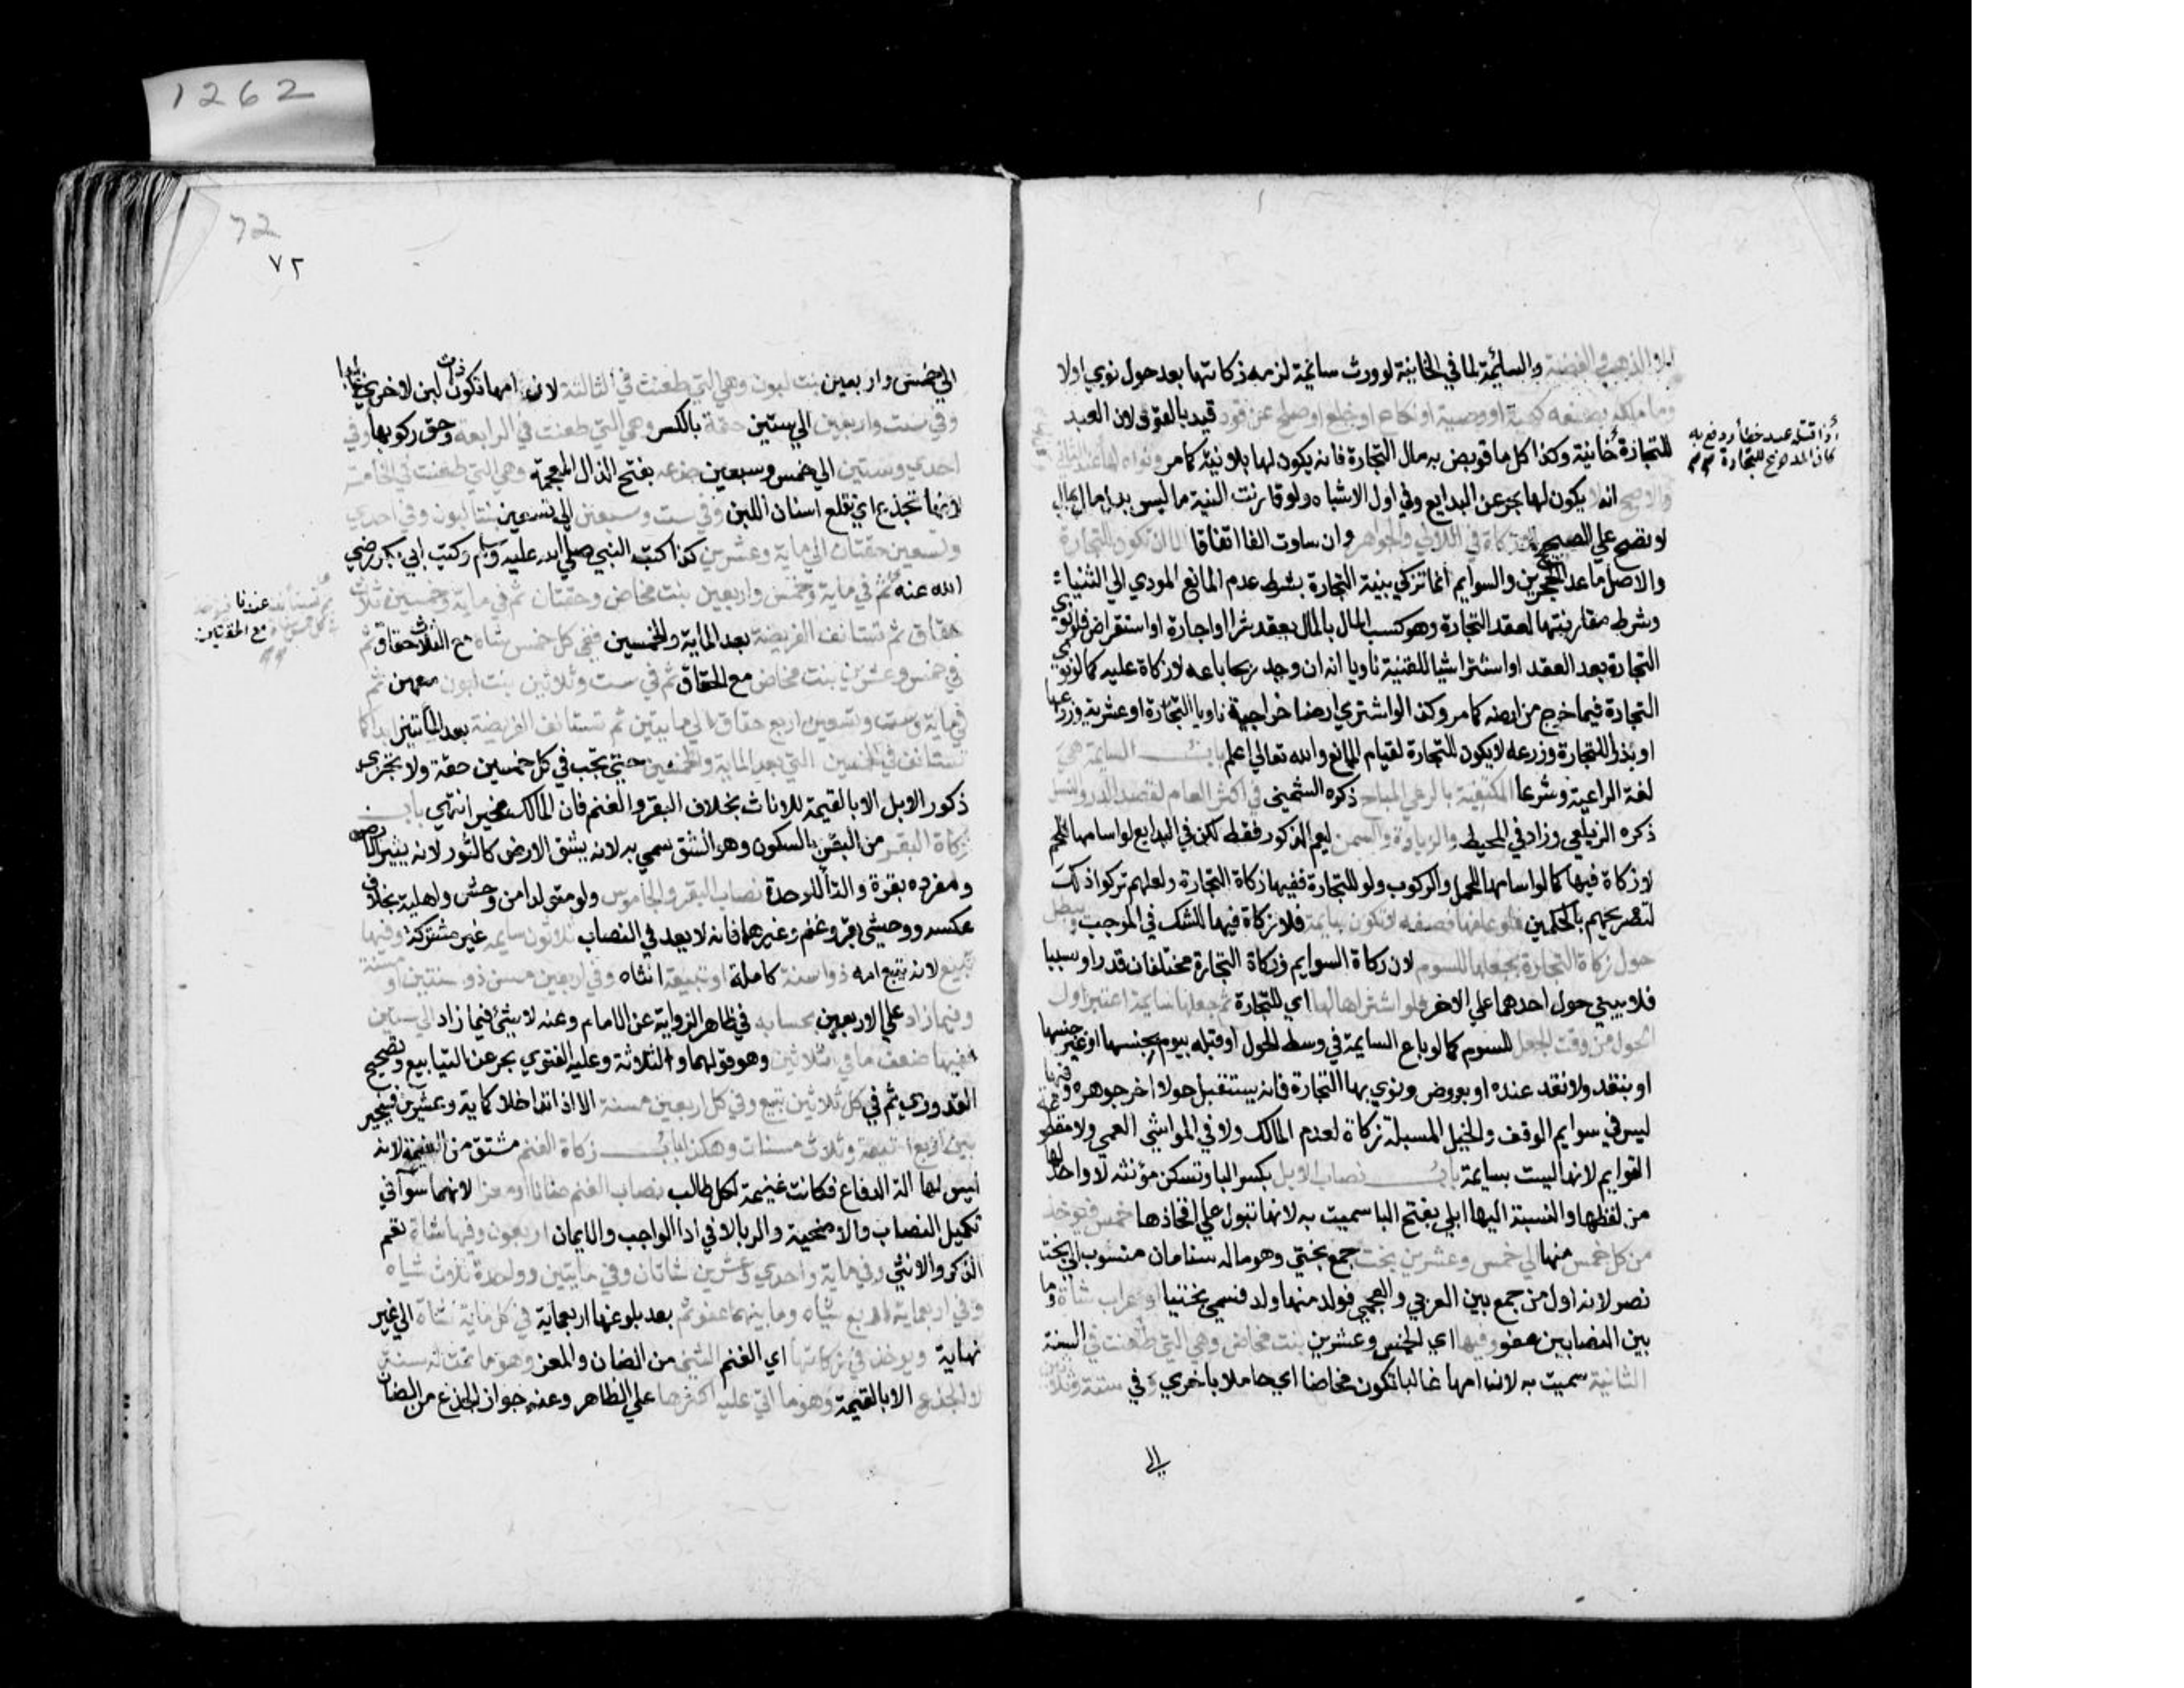 1262
الا الذهب والفضة والسائمة لما في الخانية لو ورث سائمة لزمه زكاتها بعد حول نوي اولا
وما ملكه بصنعه كهبة او وصية او نكاح او خلع او صلح عن قود قيد بالقود لان العبد
للتجارة خانية وكذا كل ما قوبض به مال التجارة فانه يكون لها بلا نية كما مر ونواه لها
والاصح انه لا يكون لها بحر عن البدايع وفي اول الاشباه ولو قارنت النية ما ليس بدل مال بمال
لا تصح علي الصحيح لا زكاة في اللالي والجواهر وان ساوت الفا اتفاقا الا ان تكون للتجارة
والاصل ما عدا الحجرين والسوايم انما تزكي بنية التجارة بشرط عدم المانع المودي الي الثنيا
وشرط مقارنتها لعقد التجارة وهو كسب المال بالمال بعقد شرا او اجارة او استقراض فلو نوي
التجارة بعد العقد او اشترا شيا للقنية ناويا انه ان وجد ربحا باعه لا زكاة عليه كما لو نوي
التجارة فيما خرج من ارضه كما مر وكذا لو اشتري ارضا خراجية ناويا التجارة او عشرية وزرعها
او بذرا للتجارة وزرعه لا يكون للتجارة لقيام المانع والله تعالي اعلم باب السايمة هي
لغة الراعية وشرعا المكتفية بالرعي المباح ذكره الشمني في اكثر العام لقصد الدر والنسل
ذكره الزيلعي وزاد في المحيط والزيادة والسمن ليعم الذكور فقط لكن في البدايع لو اسامها للحم
لا زكاة فيها كما لو اسامها للحمل والركوب ولو للتجارة ففيها زكاة التجارة ولعلهم تركوا ذلك
لتصريحهم بالحكمين فلو علفها نصفه لا تكون سايمة فلا زكاة فيها للشك في الموجب ويبطل
حول زكاة التجارة بجعلها للسوم لان زكاة السوايم وزكاة التجارة مختلفان قدرا وسببا
فلا يبني حول احدهما علي الاخر فلو اشتراها لها اي للتجارة ثم جعلها سايمة اعتبر اول
الحول من وقت الجعل للسوم كما لو باع السايمة في وسط الحول او قبله بيوم بجنسها او غير جنسها
او بنقد ولا نقد عنده او بعروض ونوي بها التجارة فانه يستقبل حولا اخر جوهره وفيها
ليس في سوايم الوقف والخيل المسبلة زكاة لعدم المالك ولا في المواشي العمي ولا مقطوعة
القوايم لانها ليست بسايمة باب نصاب الابل بكسر البا وتسكن مؤنثه لا واحد لها
من لفظها والنسبة اليها ابلي بفتح البا سميت به لانها تبول علي افخاذها خمس فيوخذ
من كل خمس منها الي خمس وعشرين بخت جمع بختي وهو ماله سنامان منسوب الي بخت
نصر لانه اول من جمع بين العربي والعجمي فولد منها ولد فسمي بختيا او عراب شاة وما
بين النصابين عفو وفيها اي الخمس وعشرين بنت مخاض وهي التي طعنت في السنة
الثانية سميت به لان امها غالبا تكون مخاضا اي حاملا باخري وفي ستة وثلاثين
الي
او اذا قتله عبد خطأ ودفع به
كان المدفوع للتجارة
72
٧٢
الي خمس واربعين بنت لبون وهي التي طعنت في الثالثة لان امها تكون ذات لبن لاخري غالبا
وفي ست واربعين الي ستين حقة بالكسر وهي التي طعنت في الرابعة وحق ركوبها وفي
احدي وستين الي خمس وسبعين جذعه بفتح الذال المعجمة وهي التي طعنت في الخامسة
لانها تجذع اي تقلع اسنان اللبن وفي ست وسبعين الي تسعين بنتا لبون وفي احدي
وتسعين حقتان الي ماية وعشرين كذا كتب النبي صلي الله عليه وسلم وكتب ابي بكر رضي
الله عنه ثم في ماية وخمس واربعين بنت مخاض وحقتان ثم في ماية وخمسين ثلاث
حقاق ثم تستانف الفريضة بعد الماية والخمسين ففي كل خمس شاة مع الثلاث حقاق ثم
في خمس وعشرين بنت مخاض مع الحقاق ثم في ست وثلاثين بنت لبون معهن ثم
في ماية وست وتسعين اربع حقاق الي مايتين ثم تستانف الفريضة بعد المايتين ابدا كما
تستانف في الخمسين التي بعد الماية والخمسين حتي تجب في كل خمسين حقة ولا تجزي
ذكور الابل الا بالقيمة للاناث بخلاف البقر والغنم فان المالك مخير انتهي باب
زكاة البقر من البقر بالسكون وهو الشق سمي به لانه يشق الارض كالثور لانه يثير الارض
ومفرده بقرة والتا للوحدة نصاب البقر والجاموس ولو متولدا من وحش واهلية بخلاف
عكسه ووحشي بقر وغنم وغيرهما فانه لا يعد في النصاب ثلاثون سايمه غير مشتركة وفيها
تبيع لانه يتبع امه ذو سنة كاملة او تبيعة انثاه وفي اربعين مسن ذو سنتين او مسنة
وفيما زاد علي الاربعين بحسابه في ظاهر الرواية عن الامام وعنه لا شئ فيما زاد الي ستين
ففيها ضعف ما في ثلاثين وهو قولهما والثلاثة وعليه الفتوي بحر عن الينابيع وتصحيح
القدوري ثم في كل ثلاثين تبيع وفي كل اربعين مسنة الا اذا تداخلا كماية وعشرين فيخير
بين اربع اتبعة وثلاث مسنات وهكذا باب زكاة الغنم مشتق من الغنيمة لانه
ليس لها الة الدفاع فكانت غنيمة لكل طالب نصاب الغنم ضانا او معزا لانهما سوا في
تكميل النصاب والاضحية والربا لا في ادا الواجب والايمان اربعون وفيها شاة تعم
الذكر والانثي وفي ماية واحدي وعشرين شاتان وفي مايتين وواحدة ثلاث شياه
وفي اربعماية اربع شياه وما بينهما عفو ثم بعد بلوغها اربعماية في كل ماية شاة الي غير
نهاية ويوخذ في زكاتها اي الغنم الثني من الضان والمعز وهو ما تمت له سنة
لا الجذع الا بالقيمة وهو ما اتي عليه اكثرها علي الظاهر وعنه جواز الجذع من الضان
ثم تستانف عندنا
مع الحقتين